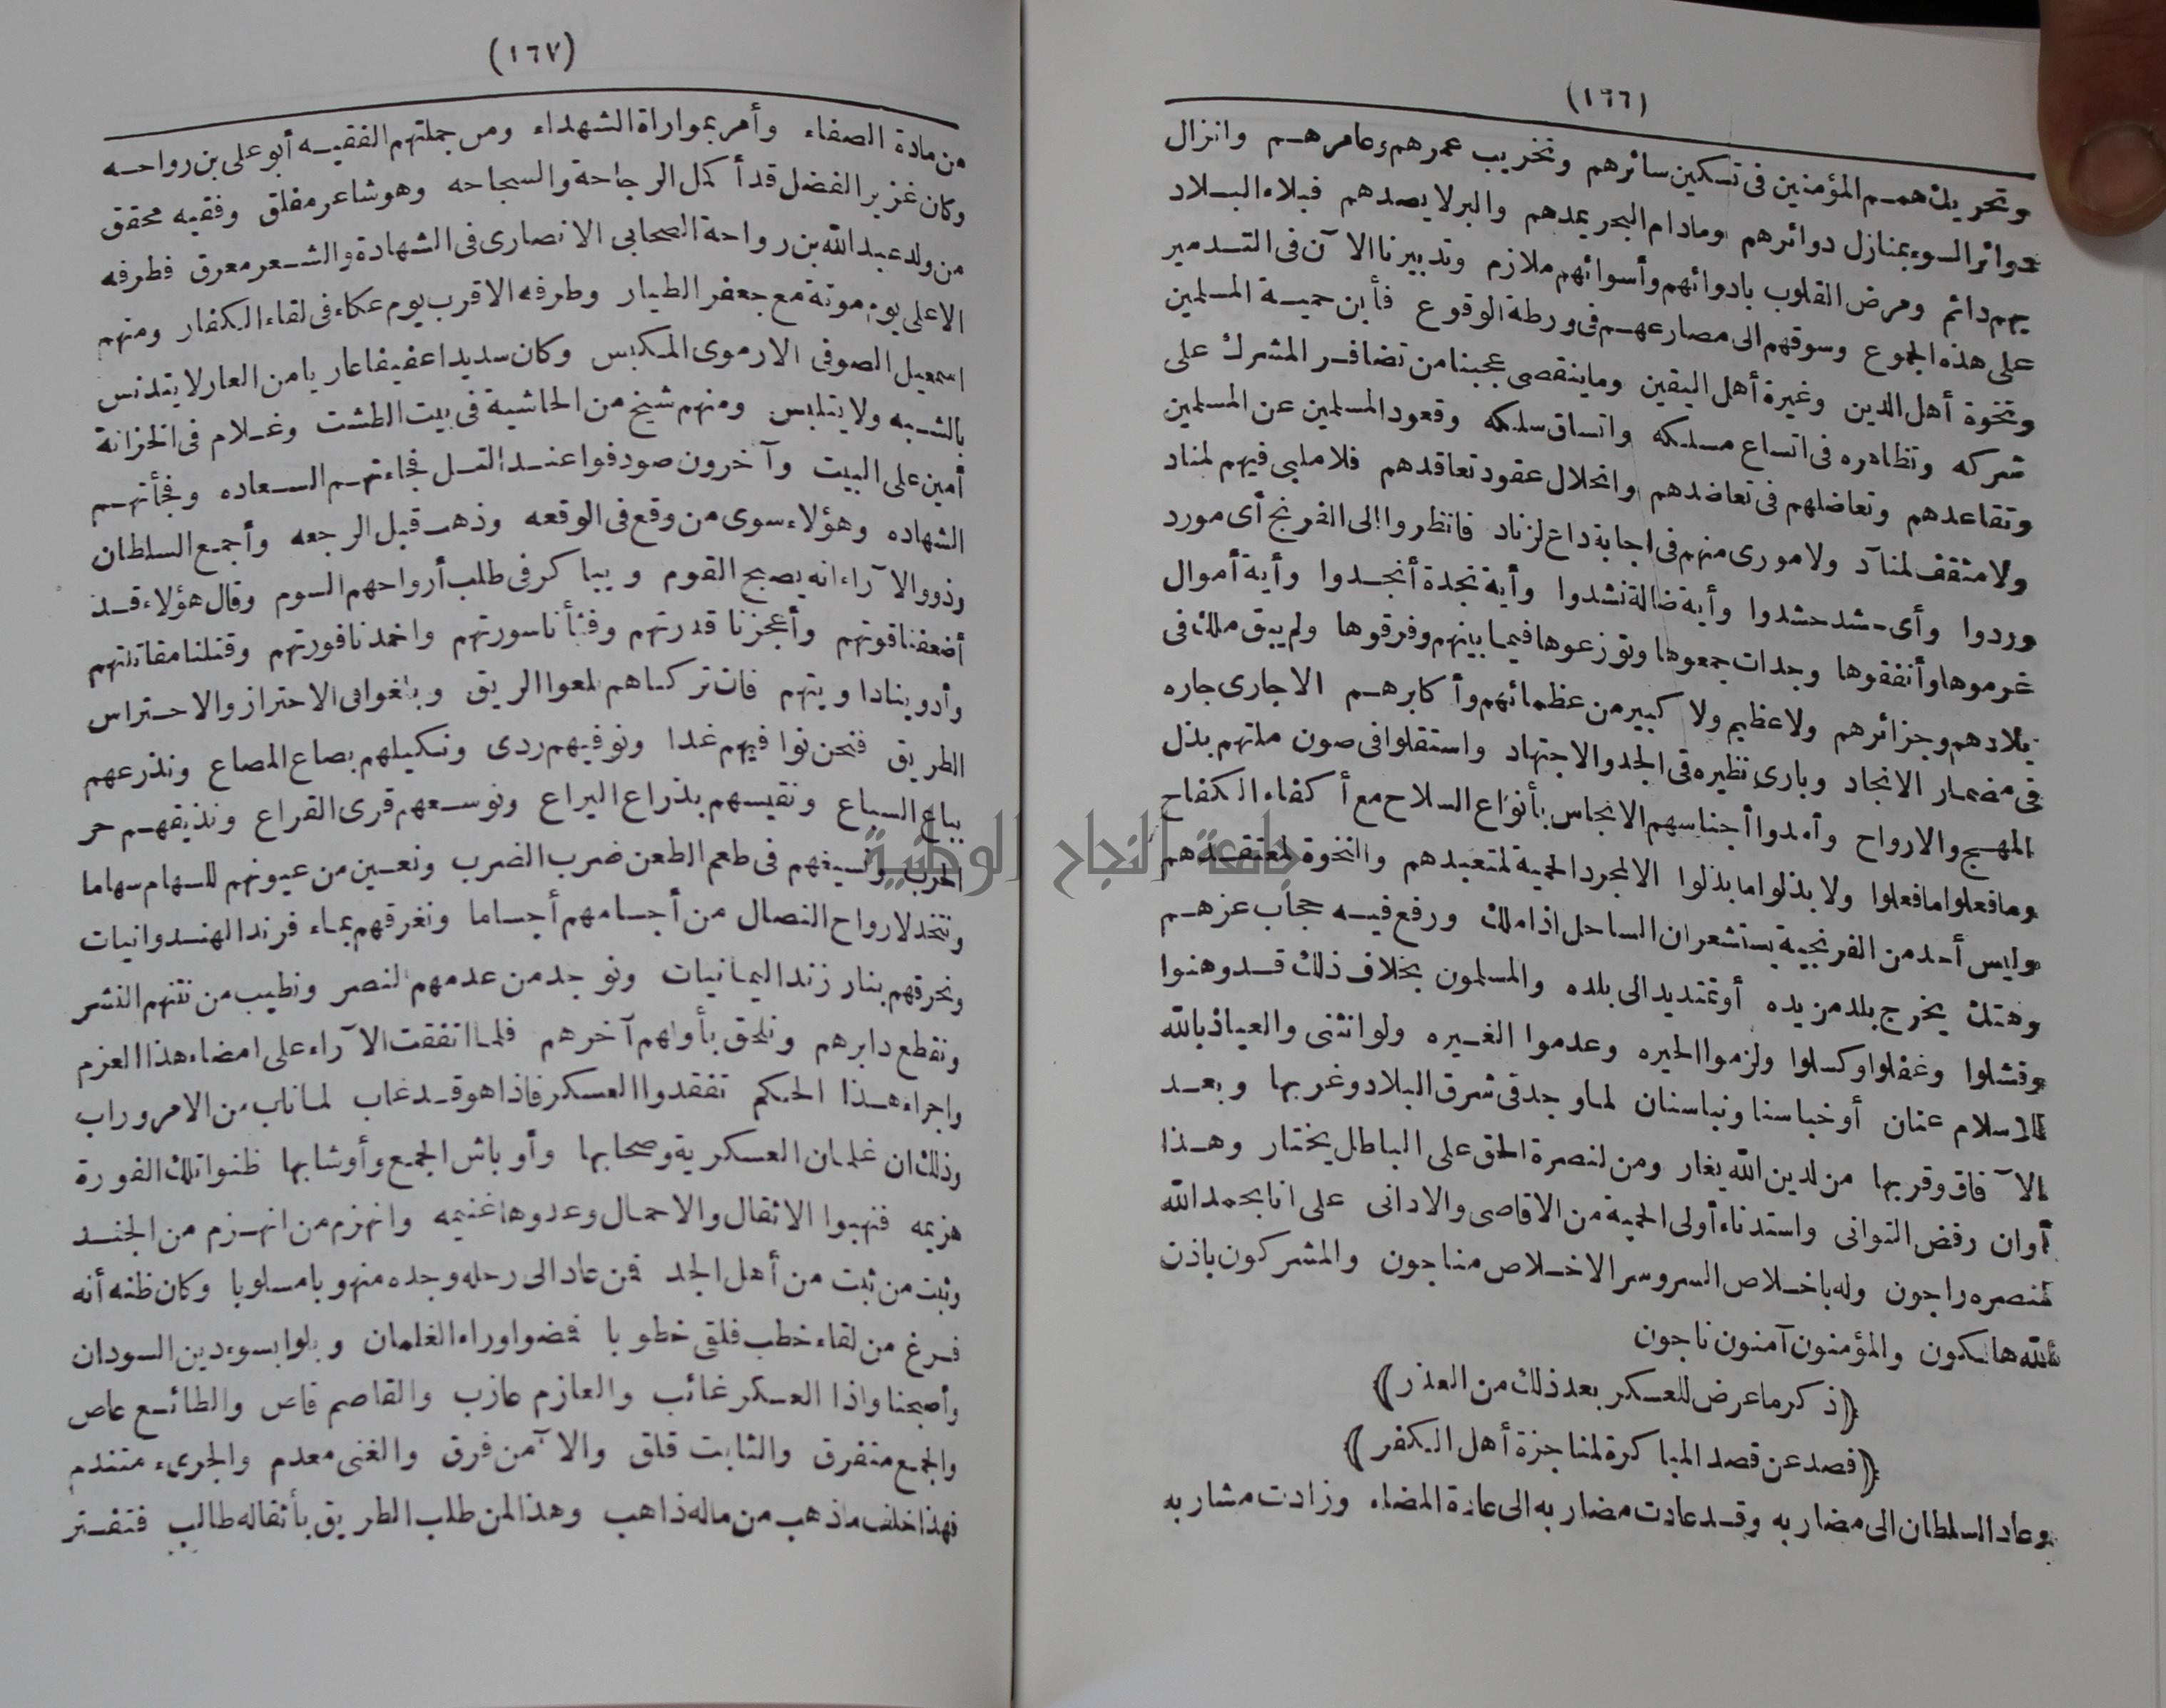 (١٦٦)
وتحريك همم المؤمنين فى تسكين سائرهم وتخريب عمرهم وعامرهم وانزال
دوائر السوء بمنازل دوائرهم ومادام البحر يمدهم والبر لا يصدهم فبلاء البلاد
بهم دائم ومرض القلوب بادوائهم وأسوائهم ملازم وتدبيرنا الآن فى التدمير
على هذه الجموع وسوقهم الى مصارعهم فى ورطة الوقوع فأين حمية المسلمين
ونخوة أهل الدين وغيرة أهل اليقين وما ينقضى عجبنا من تضافر المشرك على
شركه وتظاهره فى اتساع مسلكه واتساق سلكه وقعود المسلمين عن المسلمين
وتقاعدهم وتعاضلهم فى تعاضدهم وانحلال عقود تعاقدهم فلا ملبى فيهم لمناد
ولا مثقف لمنآد ولا مورى منهم فى اجابة داع لزناد فانظروا الى الفرنج أى مورد
وردوا وأى حشد حشدوا وأية ضالة نشدوا وأية نجدة أنجدوا وأية أموال
غرموها وأنفقوها وجدات جمعوها وتوزعوها فيما بينهم وفرقوها ولم يبق ملك فى
بلادهم وجزائرهم ولا عظيم ولا كبير من عظمائهم وأكابرهم الا جارى جاره
فى مضمار الانجاد وبارى نظيره فى الجد والاجتهاد واستقلوا فى صون ملتهم بذل
المهج والارواح وأمدوا أجناسهم الانجاس بأنواع السلاح مع أكفاء الكفاح
وما فعلوا ما فعلوا ولا بذلوا ما بذلوا الا لمجرد الحمية لمتعبدهم والنخوة لمعتقدهم
وليس أحد من الفرنجية يستشعر ان الساحل اذا ملك ورفع فيه حجاب عزهم
وهتك يخرج بلد من يده أو تمتد يد الى بلده والمسلمون بخلاف ذلك قد وهنوا
وفشلوا وغفلوا وكسلوا ولزموا الحيره وعدموا الغيره ولو انثنى والعياذ بالله
للاسلام عنان أو خبا سنا ونبا سنان لما وجد فى شرق البلاد وغربها وبعد
الآفاق وقربها من لدين الله يغار ومن لنصرة الحق على الباطل يختار وهذا
أوان رفض التوانى واستدناء أولى الحمية من الاقاصى والادانى على انا بحمد الله
لنصره راجون وله باخلاص السر وسر الاخلاص مناجون والمشركون باذن
الله هالكون والمؤمنون آمنون ناجون
﴿(ذكر ما عرض للعسكر بعد ذلك من العذر)﴾
﴿(فصد عن قصد المباكرة لمناجزة أهل الكفر)﴾
وعاد السلطان الى مضاربه وقد عادت مضاربه الى عادة المضاء وزادت مشاربه
(١٦٧)
من مادة الصفاء وأمر بمواراة الشهداء ومن جملتهم الفقيه أبو على بن رواحه
وكان غزير الفضل قد أكمل الرجاحة والسجاحه وهو شاعر مفلق وفقيه محقق
من ولد عبد الله بن رواحة الصحابى الانصارى فى الشهادة والشعر معرق فطرفه
الاعلى يوم موتة مع جعفر الطيار وطرفه الاقرب يوم عكاء فى لقاء الكفار ومنهم
اسمعيل الصوفى الارموى المكبس وكان سديدا عفيفا عاريا من العار لا يتدنس
بالشبه ولا يتلبس ومنهم شيخ من الحاشية فى بيت الطشت وغلام فى الخزانة
أمين على البيت وآخرون صودفوا عند التل فجاءتهم السعاده وفجأتهم
الشهاده وهؤلاء سوى من وقع فى الوقعه وذهب قبل الرجعه وأجمع السلطان
وذوو الآراء انه يصبح القوم ويباكر فى طلب أرواحهم السوم وقال هؤلاء قد
أضعفنا قوتهم وأعجزنا قدرتهم وفثأنا سورتهم واخمدنا فورتهم وقتلنا مقاتلتهم
وأدوينا داويتهم فان تركناهم بلعوا الريق وبلغوا فى الاحتراز والاحتراس
الطريق فنحن نوافيهم غدا ونوفيهم ردى ونكيلهم بصاع المصاع ونذرعهم
بباع السباع ونقيسهم بذراع اليراع ونوسعهم قرى القراع ونذيقهم حر
الحرب ونسيغهم فى طعم الطعن ضرب الضرب ونعين من عيونهم للسهام سهاما
ونتخذ لارواح النصال من أجسامهم أجساما ونغرقهم بماء فرند الهندوانيات
ونحرقهم بنار زند اليمانيات ونوجد من عدمهم النصر ونطيب من نتنهم النشر
ونقطع دابرهم ونلحق بأولهم آخرهم فلما اتفقت الآراء على امضاء هذا العزم
واجراء هذا الحكم تفقدوا العسكر فاذا هو قد غاب لما ناب من الامر وراب
وذلك ان غلمان العسكرية وصحابها وأوباش الجمع وأوشابها ظنوا تلك الفورة
هزيمه فنهبوا الاثقال والاحمال وعدوها غنيمه وانهزم من انهزم من الجند
وثبت من ثبت من أهل الجد فمن عاد الى رحله وجده منهوبا مسلوبا وكان ظنه أنه
فرغ من لقاء خطب فلقى خطوبا فمضوا وراء الغلمان وبلوا بسوء دين السودان
وأصبحنا واذا العسكر غائب والعازم عازب والقاصم قاص والطائع عاص
والجمع متفرق والثابت قلق والآمن فرق والغنى معدم والجرىء متندم
فهذا خلف ماذهب من ماله ذاهب وهذا لمن طلب الطريق بأثقاله طالب فتفتر
جامعة النجاح الوطنية